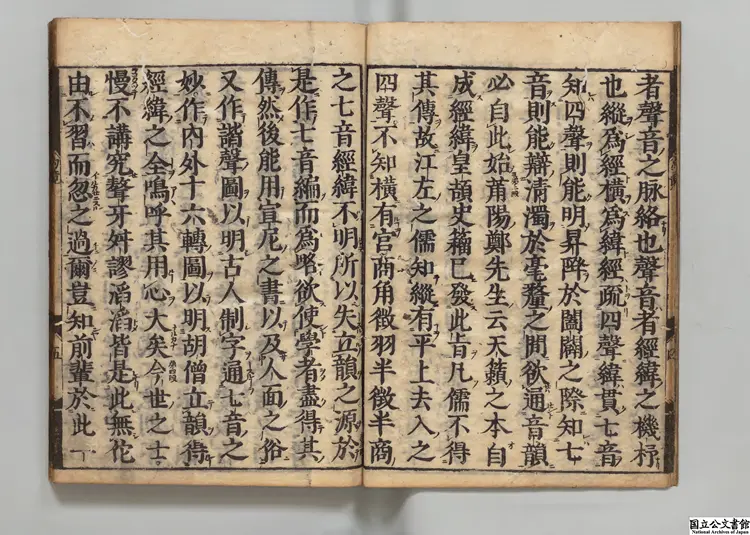 者聲音之脉絡也聲音者經緯之機杼
也縱爲經橫爲緯經疏四聲緯貫七音
知四聲則能明昇降於闔闢之際知七
音則能辯清濁於毫釐之間欲通音韻
必自此始莆陽鄭先生云天籟之本自
成經緯皇頡史籀已發此旨凡儒不得
其傳故江左之儒知縱有平上去入之
四聲不知橫有宮商角徵羽半徵半商
之七音經緯不明所以失立韻之源於
是作七音編而爲略欲使學者盡得其
傳然後能用宣尼之書以及人面之俗
又作諧聲圖以明古人制字通七音之
妙作內外十六轉圖以明胡僧立韻得
經緯之全嗚呼其用心大矣今世之士
慢不講究聱牙舛謬滔滔皆是此無佗
由不習而忽之過爾豈知前輩於此一
五
国立公文書館
National Archives of Japan